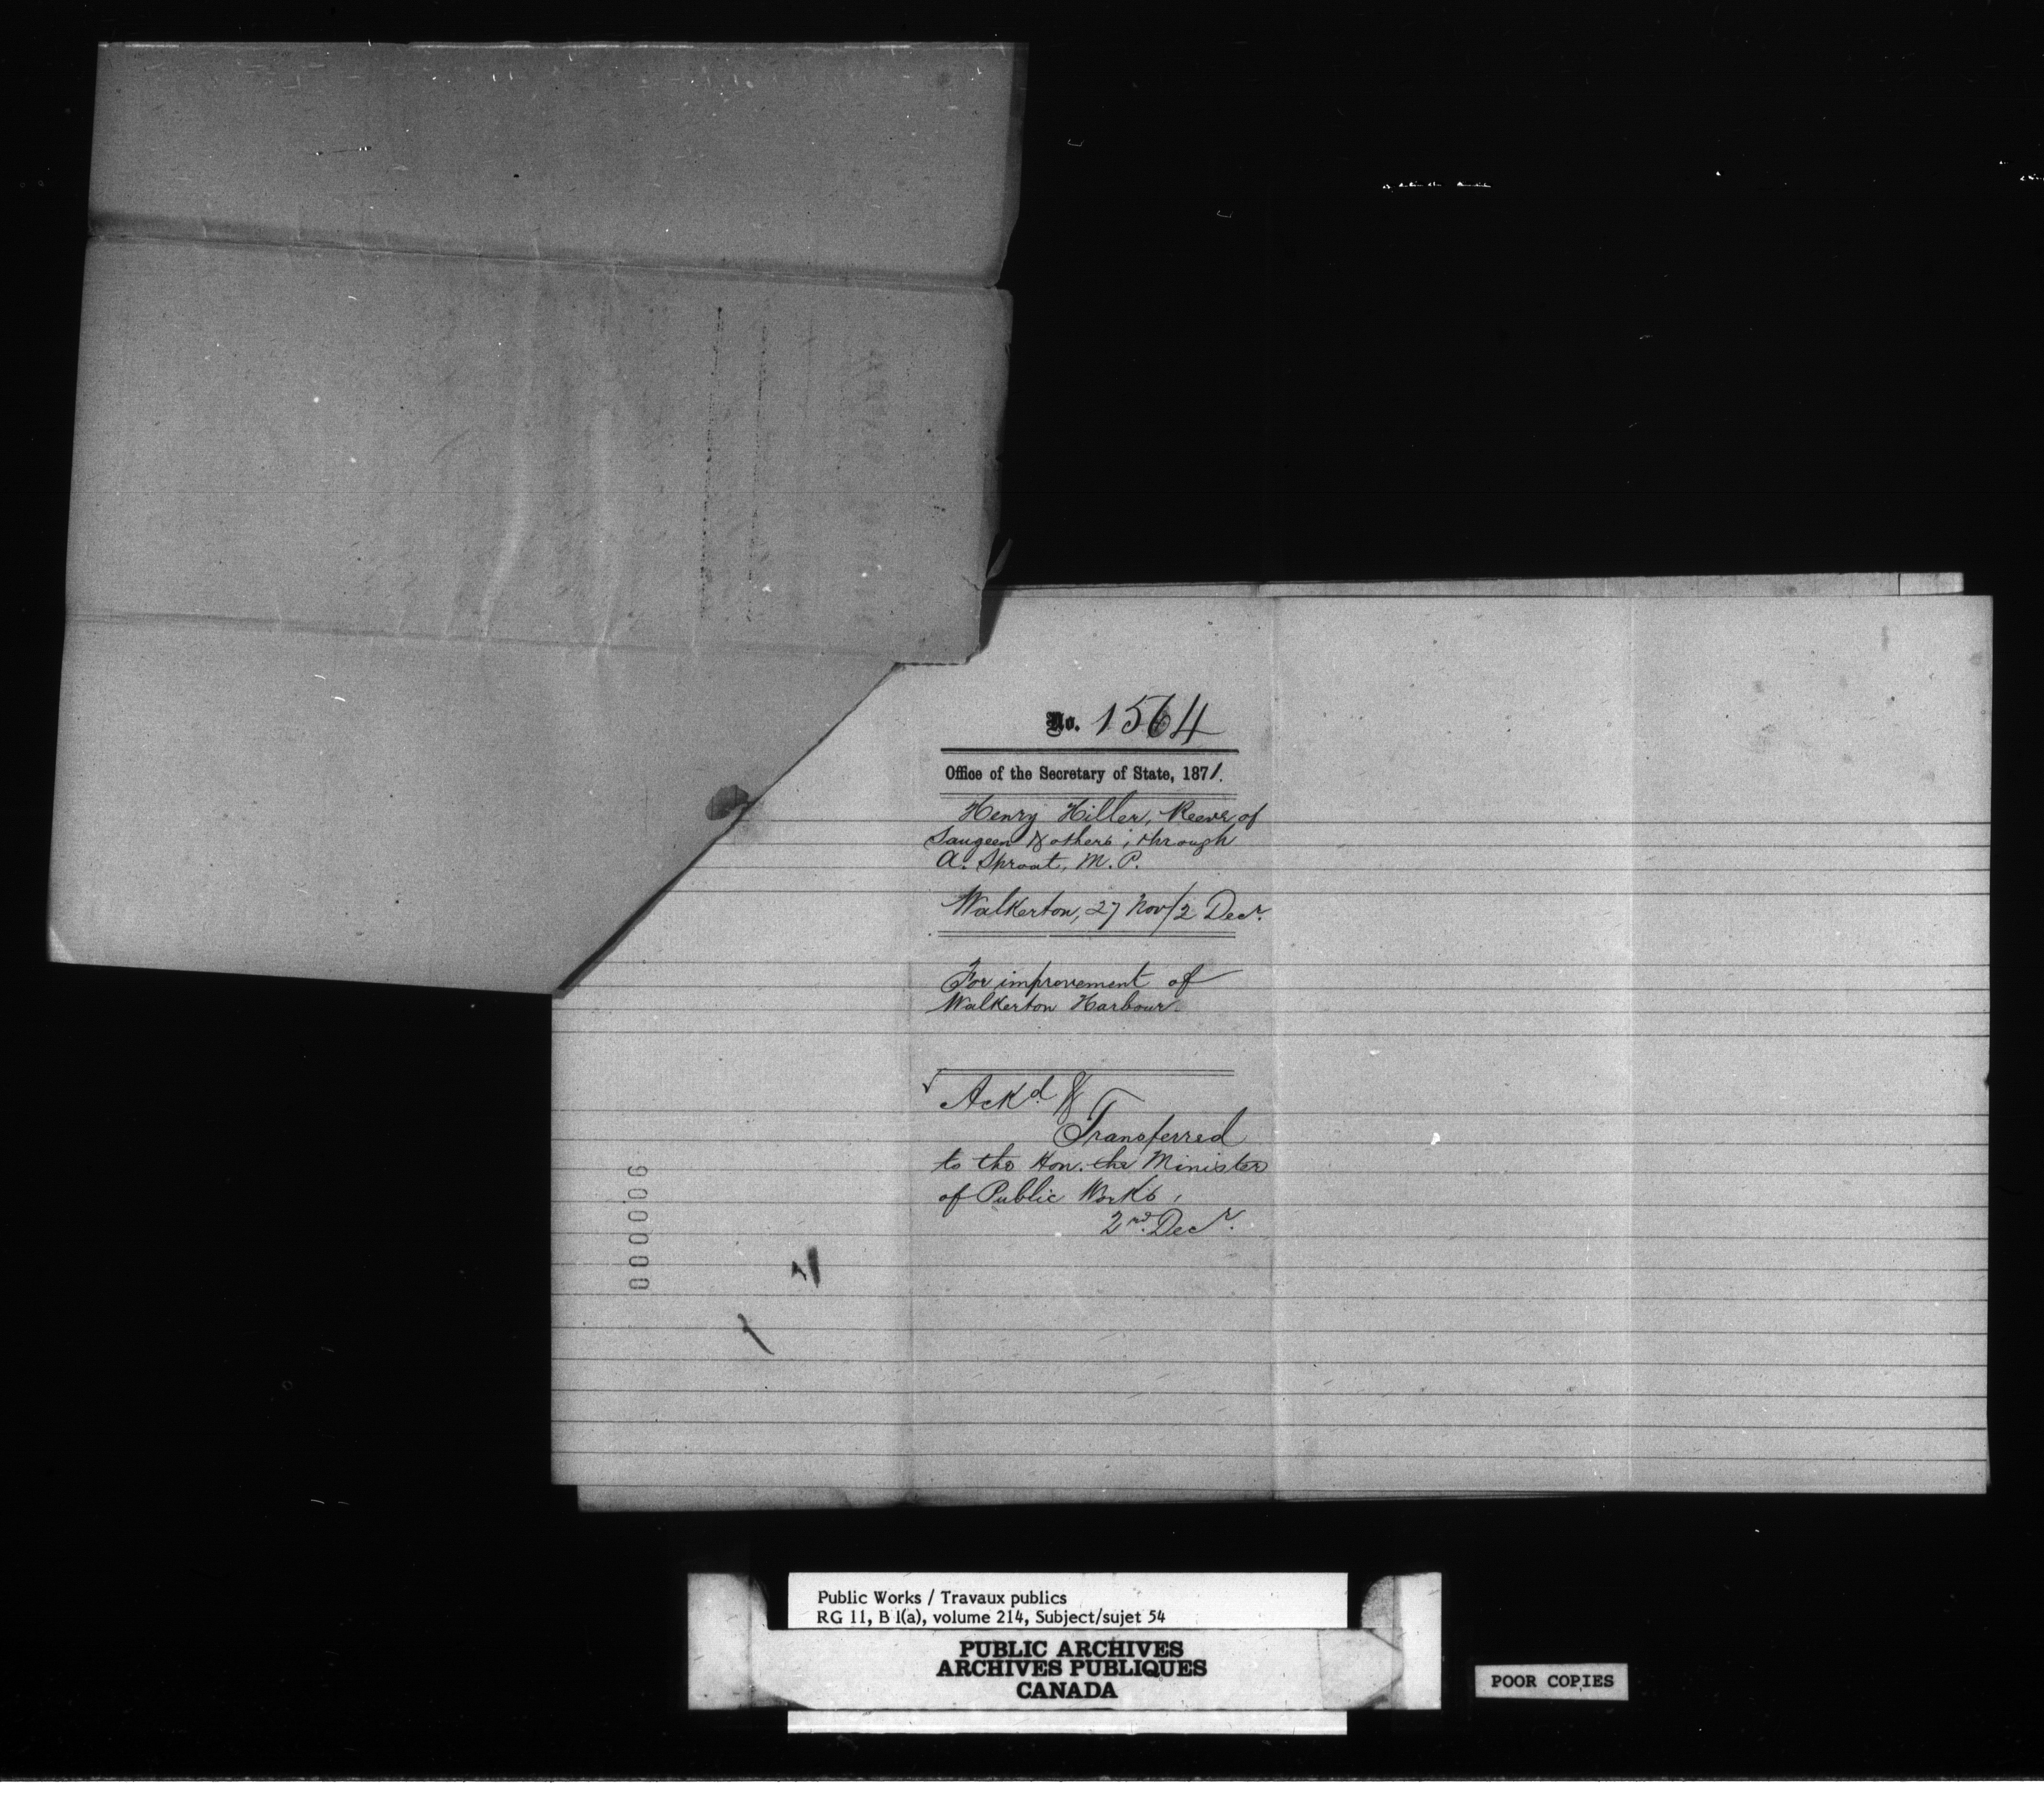 No. 1564
Office of the Secretary of State, 1871.
Henry Hiller, Reeve of
Saugeen & others; through
A. Sproat, M. P.
Walkerton, 27 Nov/2 Decr.
For improvement of
Walkerton Harbour.
Ackd. &
Transferred
to the Hon. the Minister
of Public Works,
2nd. Decr.
000006
Public Works / Travaux publics
RG 11, B 1(a), volume 214, Subject/sujet 54
PUBLIC ARCHIVES
ARCHIVES PUBLIQUES
CANADA
POOR COPIES